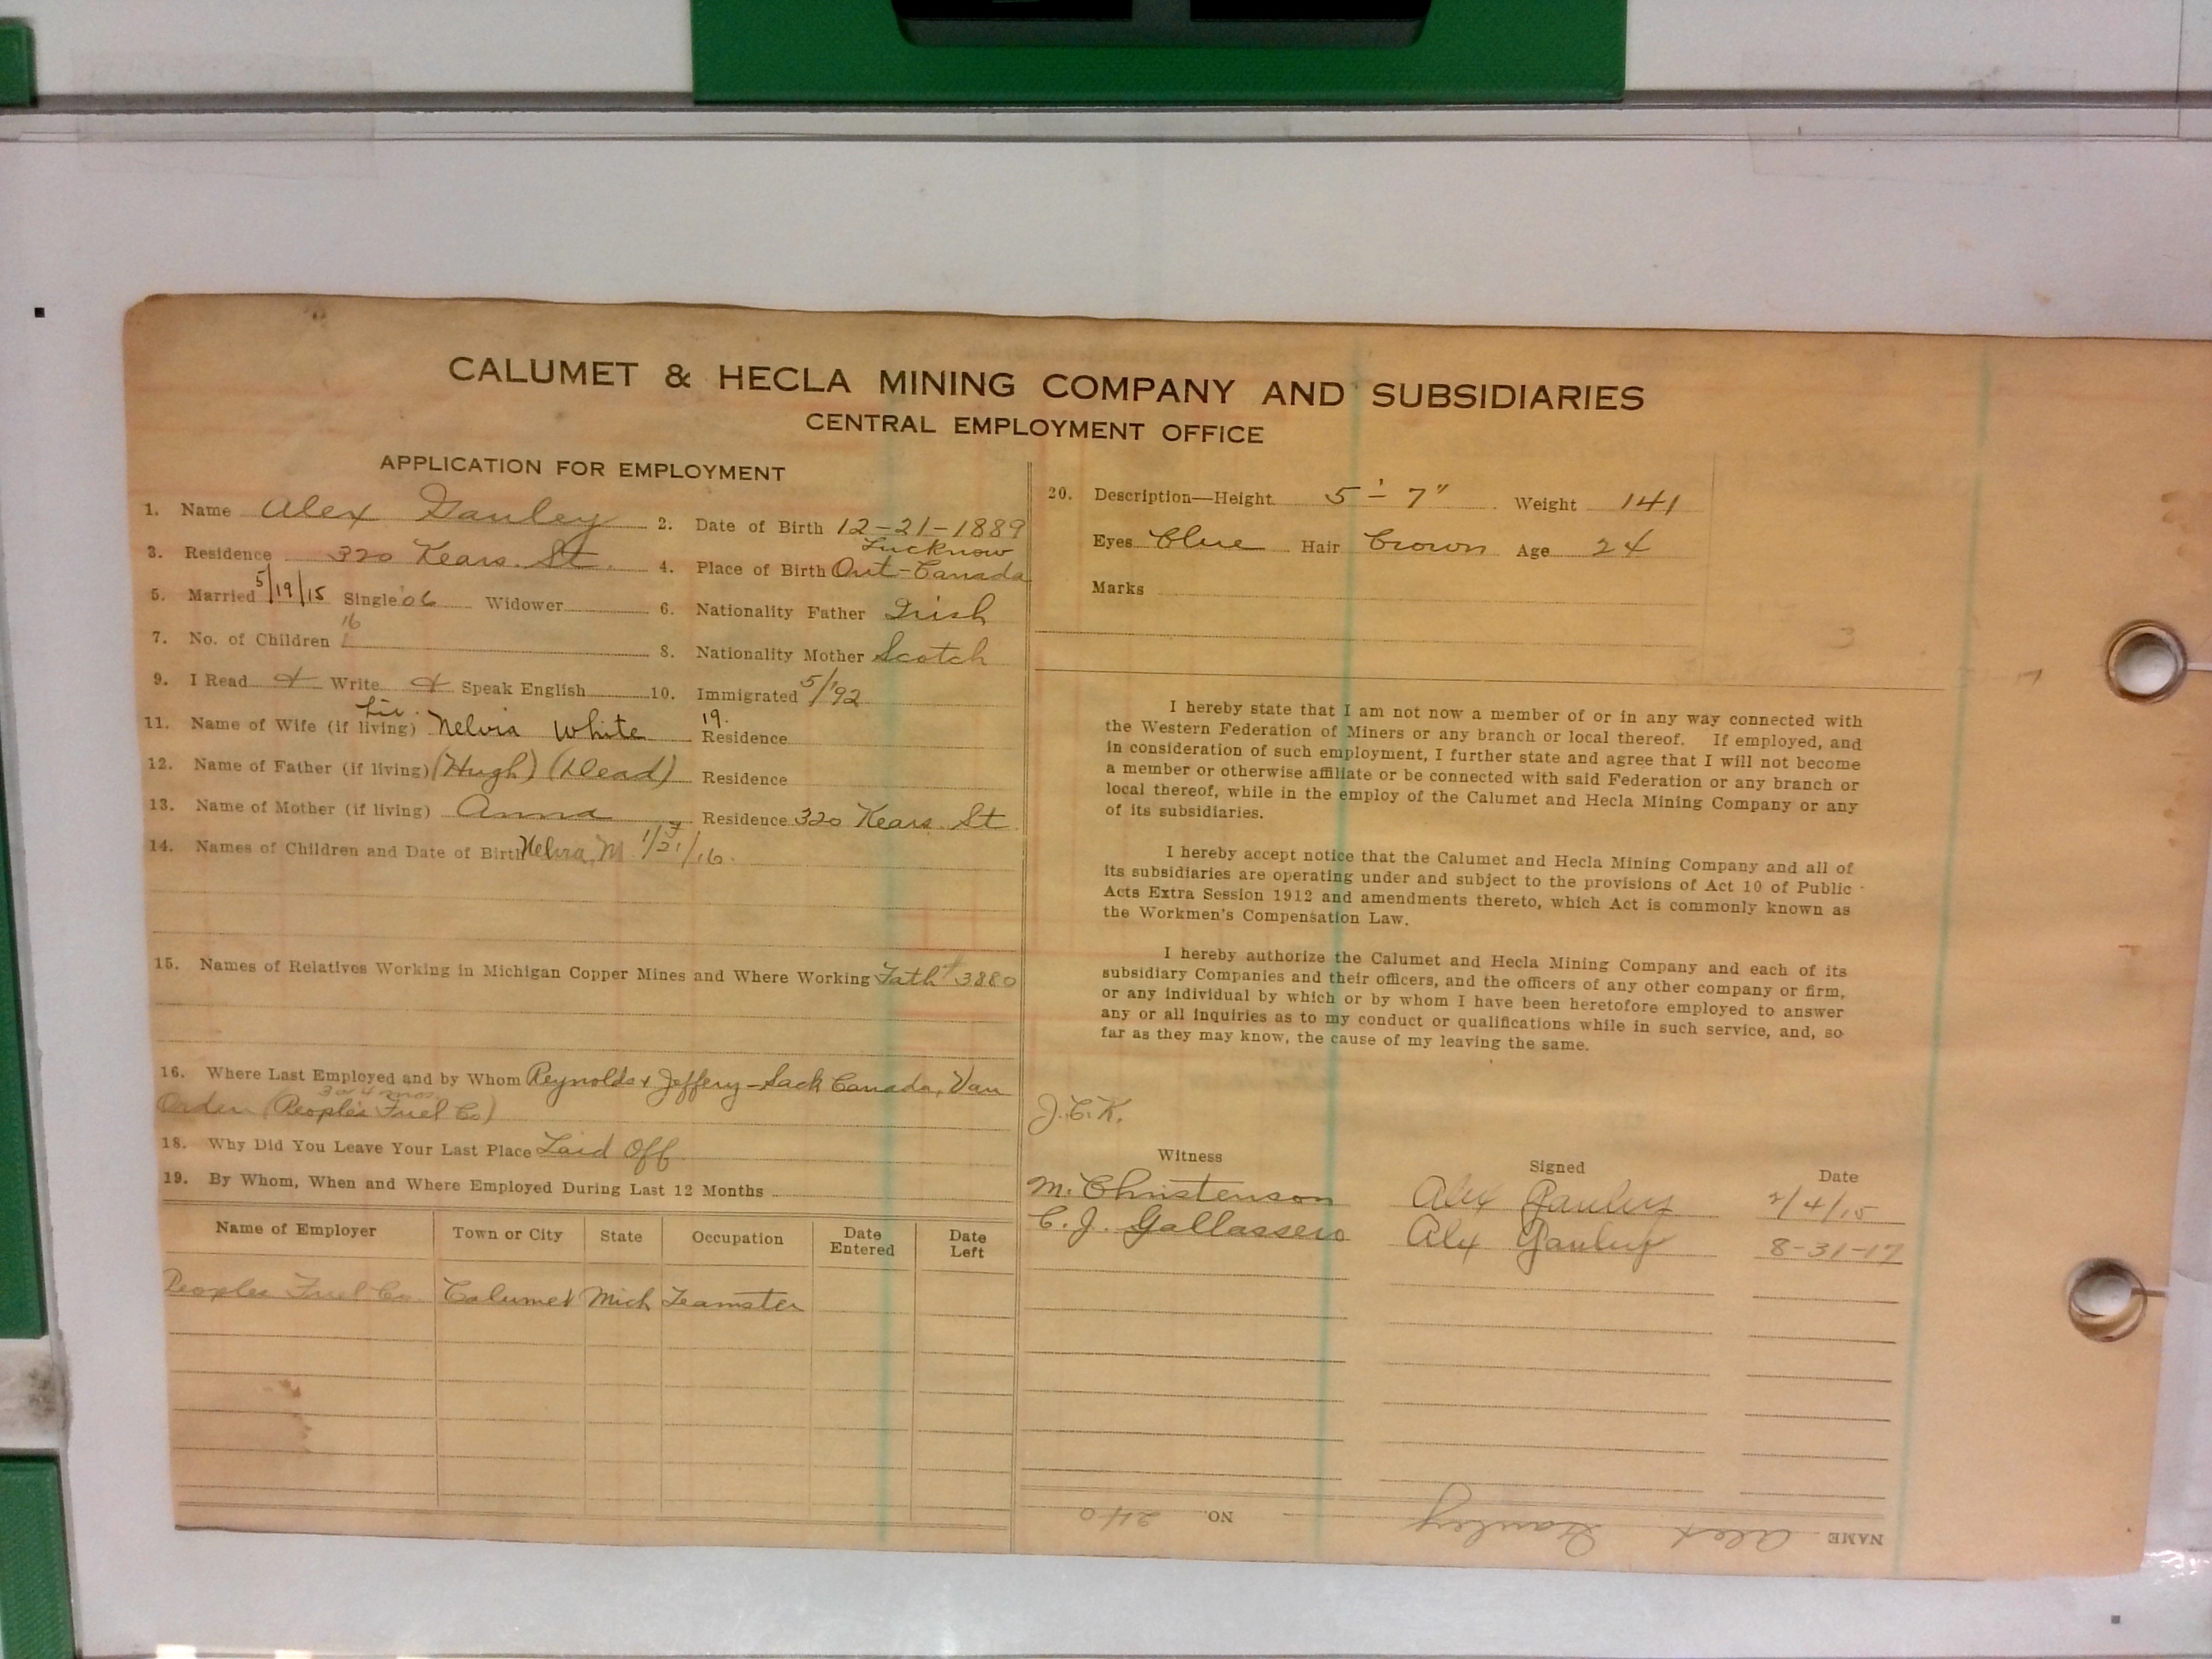 CALUMET & HECLA MINING COMPANY AND SUBSIDIARIES
CENTRAL EMPLOYMENT OFFICE
APPLICATION FOR EMPLOYMENT
1. Name Alex Gauley 2. Date of Birth 12-21-1889
3. Residence 320 Kears. St. 4. Place of Birth Lucknow Ont-Canada
5. Married 5/19/15 Single Widower 6. Nationality Father Irish
7. No. of Children 1 16 8. Nationality Mother Scotch
9. I Read & Write & Speak English 10. Immigrated 5/'92
11. Name of Wife (if living) Nelvia White 19. Residence
12. Name of Father (if living) (Hugh) (Dead) Residence
13. Name of Mother (if living) Anna Residence 320 Kears. St
14. Names of Children and Date of Birth Nelvia M 1/21/16.
15. Names of Relatives Working in Michigan Copper Mines and Where Working Fath # 3880
16. Where Last Employed and by Whom Reynolds & Jeffery - Sack Canada, Van
Orden (Peoples Fuel Co) 3 or 4 mos
18. Why Did You Leave Your Last Place Laid Off
19. By Whom, When and Where Employed During Last 12 Months
Name of Employer Town or City State Occupation Date Entered Date Left
Peoples Fuel Co. Calumet Mich Teamster
20. Description—Height 5'-7" Weight 141
Eyes Blue Hair Brown Age 24
Marks
3
I hereby state that I am not now a member of or in any way connected with
the Western Federation of Miners or any branch or local thereof. If employed, and
in consideration of such employment, I further state and agree that I will not become
a member or otherwise affiliate or be connected with said Federation or any branch or
local thereof, while in the employ of the Calumet and Hecla Mining Company or any
of its subsidiaries.
I hereby accept notice that the Calumet and Hecla Mining Company and all of
its subsidiaries are operating under and subject to the provisions of Act 10 of Public
Acts Extra Session 1912 and amendments thereto, which Act is commonly known as
the Workmen's Compensation Law.
I hereby authorize the Calumet and Hecla Mining Company and each of its
subsidiary Companies and their officers, and the officers of any other company or firm,
or any individual by which or by whom I have been heretofore employed to answer
any or all inquiries as to my conduct or qualifications while in such service, and, so
far as they may know, the cause of my leaving the same.
J.C.K.
Witness Signed Date
M. Christenson Alex Gauley 2/4/15
C. J. Gallassero Alex Gauley 8-31-17
NAME Alex Gauley NO. 240